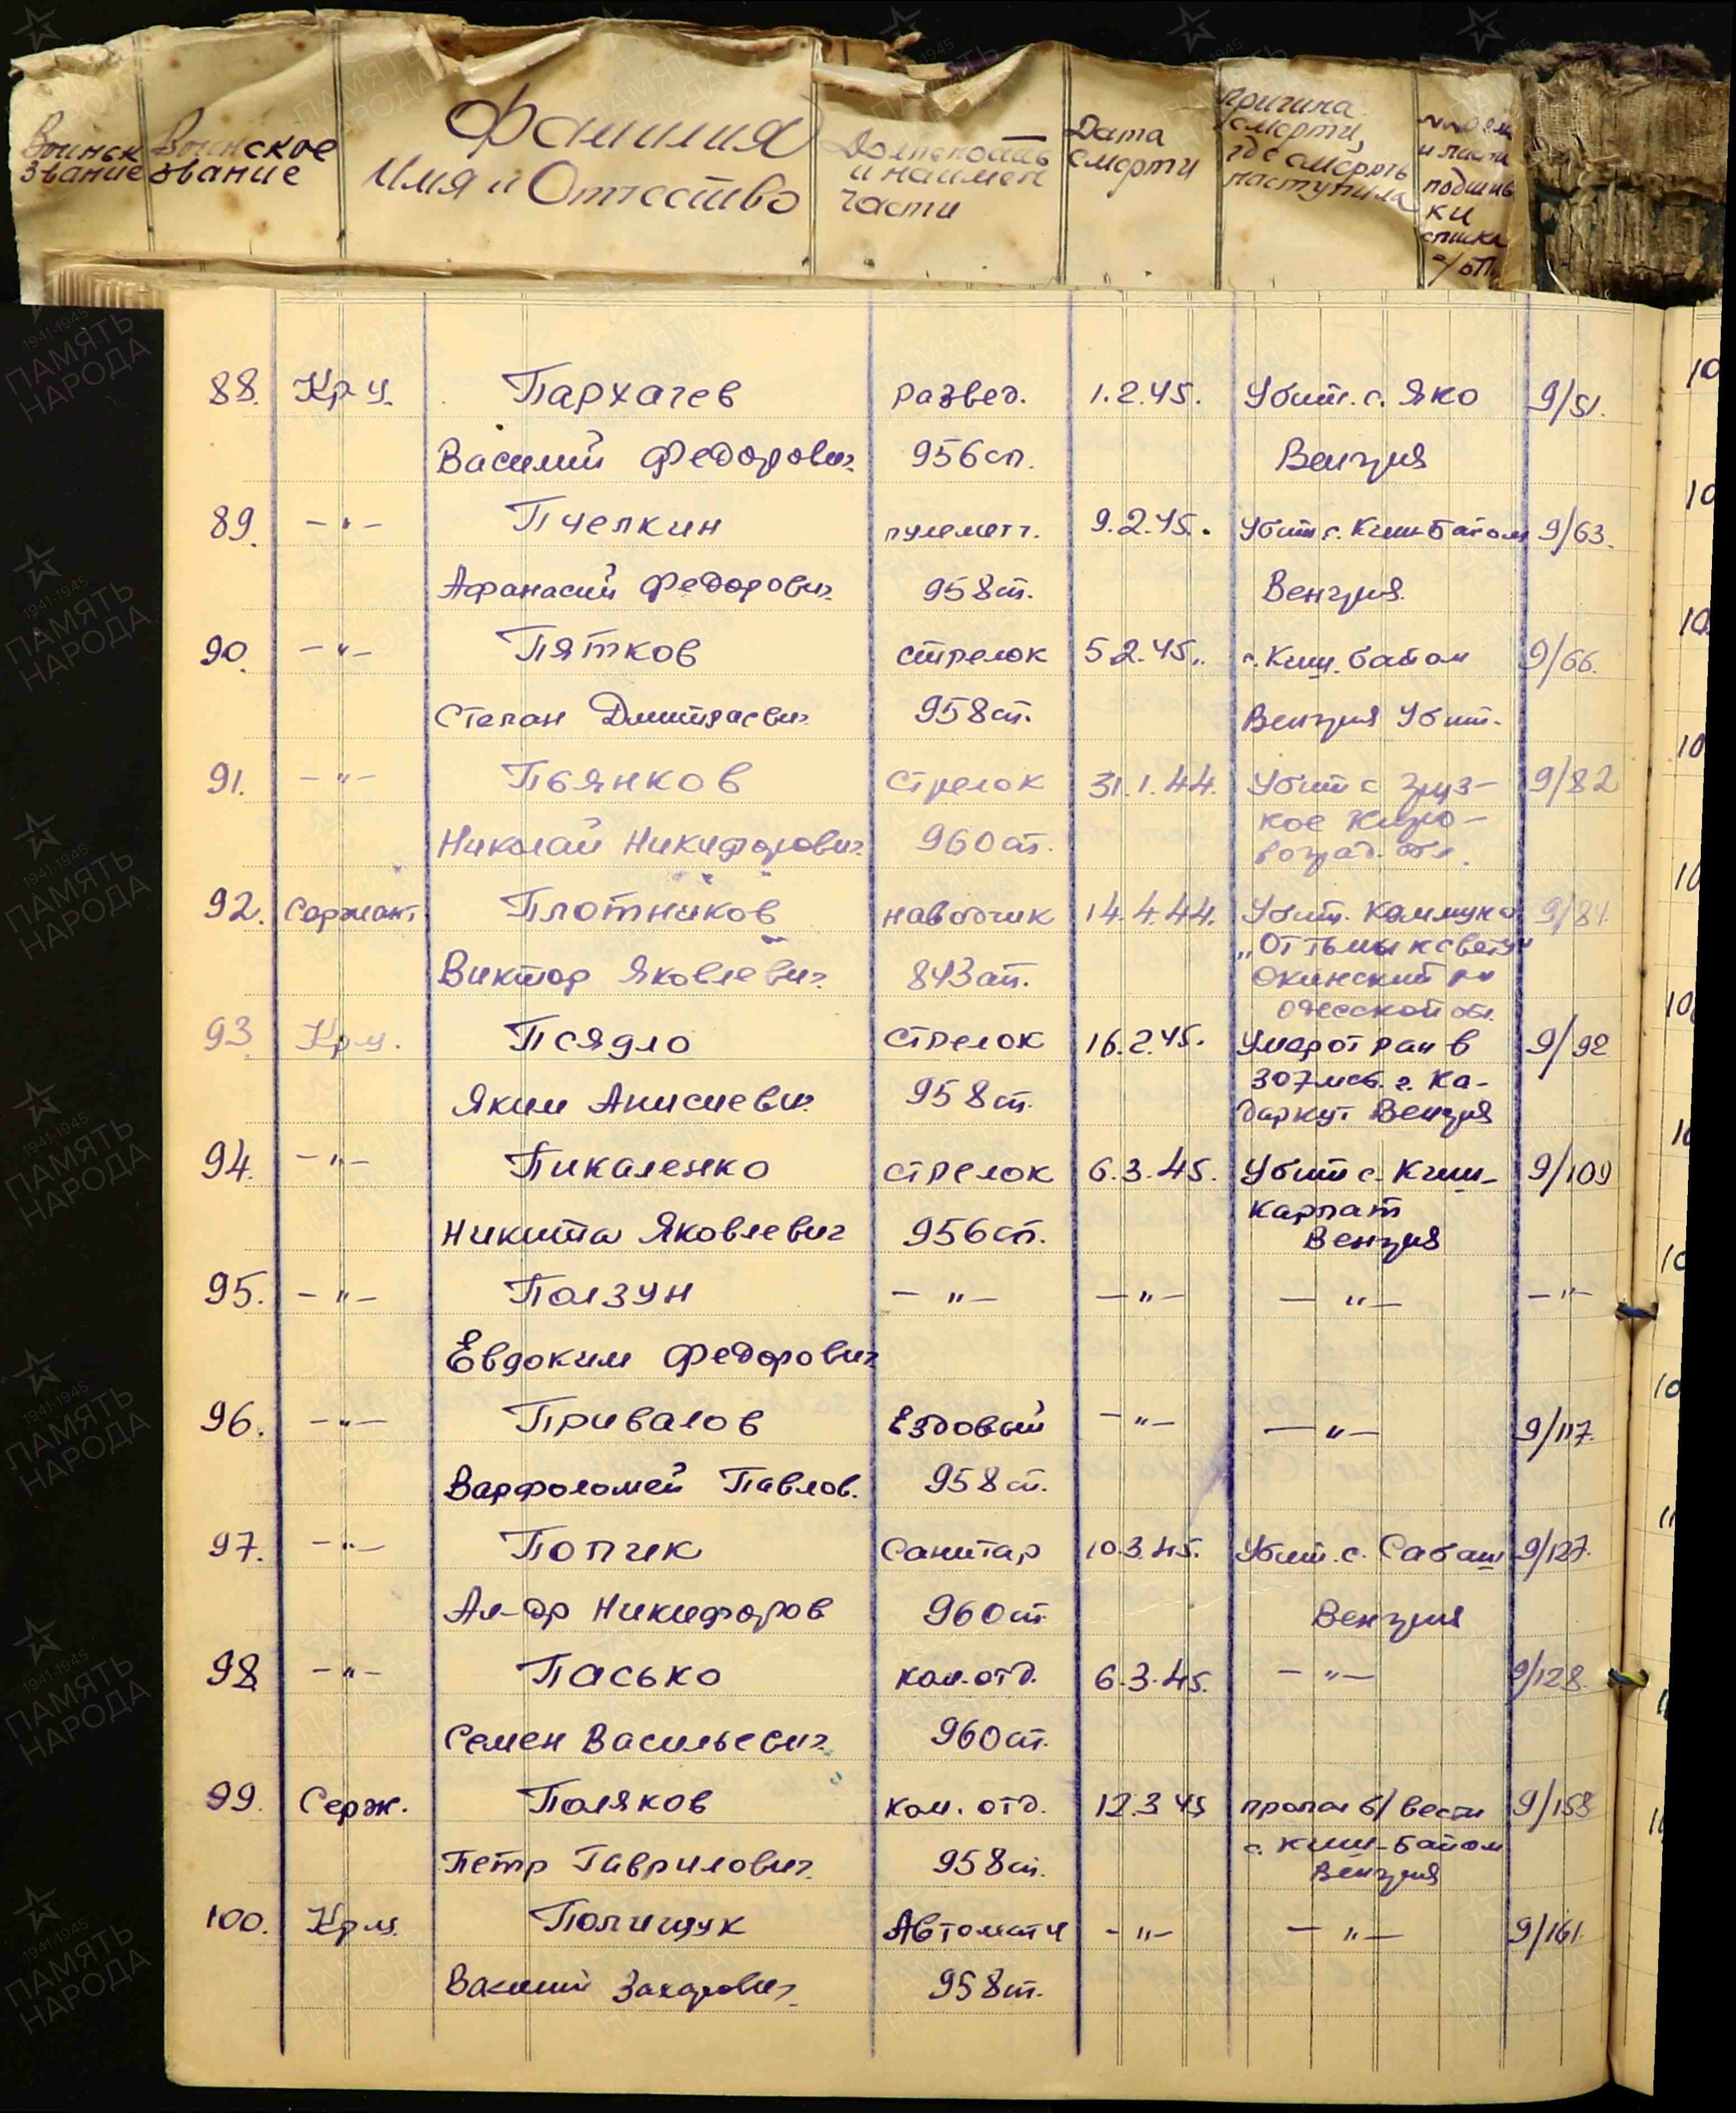 Воинск звание
Воинское звание
Фамилия
Имя и Отчество
Должность и наимен части
Дата смерти
Причина смерти, где смерть наступила
и листа подшивки списка
88. Кр-ц. Пархачев развед. 1.2.45. Убит. с. Яко 9/51.
Василий Федорович 956сп. Венгрия
89. —"— Пчелкин пулеметч. 9.2.45. Убит с. Киш-Байом 9/63.
Афанасий Федорович 958сп. Венгрия
90. —"— Пятков стрелок 5.2.45. с. Киш. байом 9/66.
Степан Дмитриевич 958сп. Венгрия Убит.
91. —"— Пьянков Стрелок 31.1.44. Убит с Груз-
кое Киро-
Николай Никифорович 960сп. воград. обл.
92. Сержант Плотников наводчик 14.4.44. Убит. Коммуна 9/84
„От тьмы к свету"
Виктор Яковлевич 843ап. Окинский р-н
Одесской обл.
93. Кр-ц. Псядло Стрелок 16.2.45. Умер от ран в 9/92
307мсб. г. Ка-
Яким Анисиевич 958сп. даркут Венгрия
94. —"— Пикаленко Стрелок 6.3.45. Убит с. Киш- 9/109
карпат
Никита Яковлевич 956сп. Венгрия
95. —"— Ползун —"— —"— —"— —"—
Евдоким Федорович
96. —"— Привалов Ездовый —"— —"— 9/117.
Варфоломей Павлов. 958сп.
97. —"— Попик Санитар 10.3.45. Убит. с. Сабаш 9/127.
Ал-др Никифоров 960сп Венгрия
98 —"— Пасько ком.отд. 6.3.45. —"— 9/128.
Семен Васильевич 960сп.
99. Серж. Поляков ком. отд. 12.3 45 пропал б/вести 9/158
с. Киш-Байом
Петр Гаврилович 958сп. Венгрия
100. Кр-ц. Полищук Автоматч —"— —"— 9/161.
Василий Захарович 958сп.
1941-1945
ПАМЯТЬ
НАРОДА